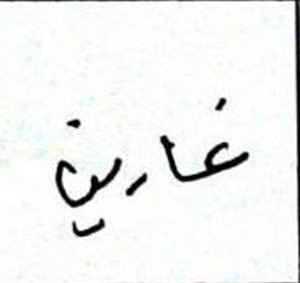 غارين